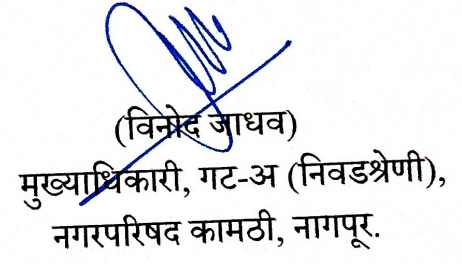 (विनोद जाधव)
मुख्याधिकारी, गट-अ (निवडश्रेणी),
नगरपरिषद कामठी, नागपूर.